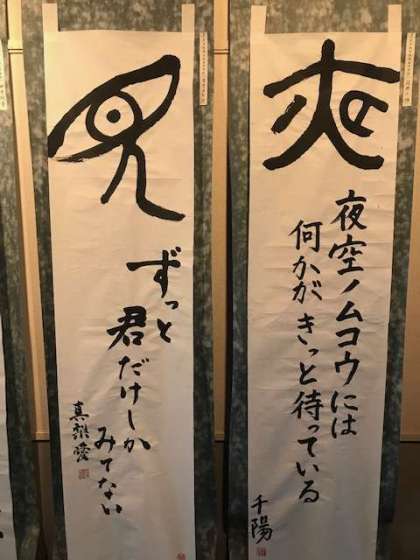 夜
夜空ノムコウには
何かがきっと待っている
千陽
見
ずっと
君だけしか
みてない